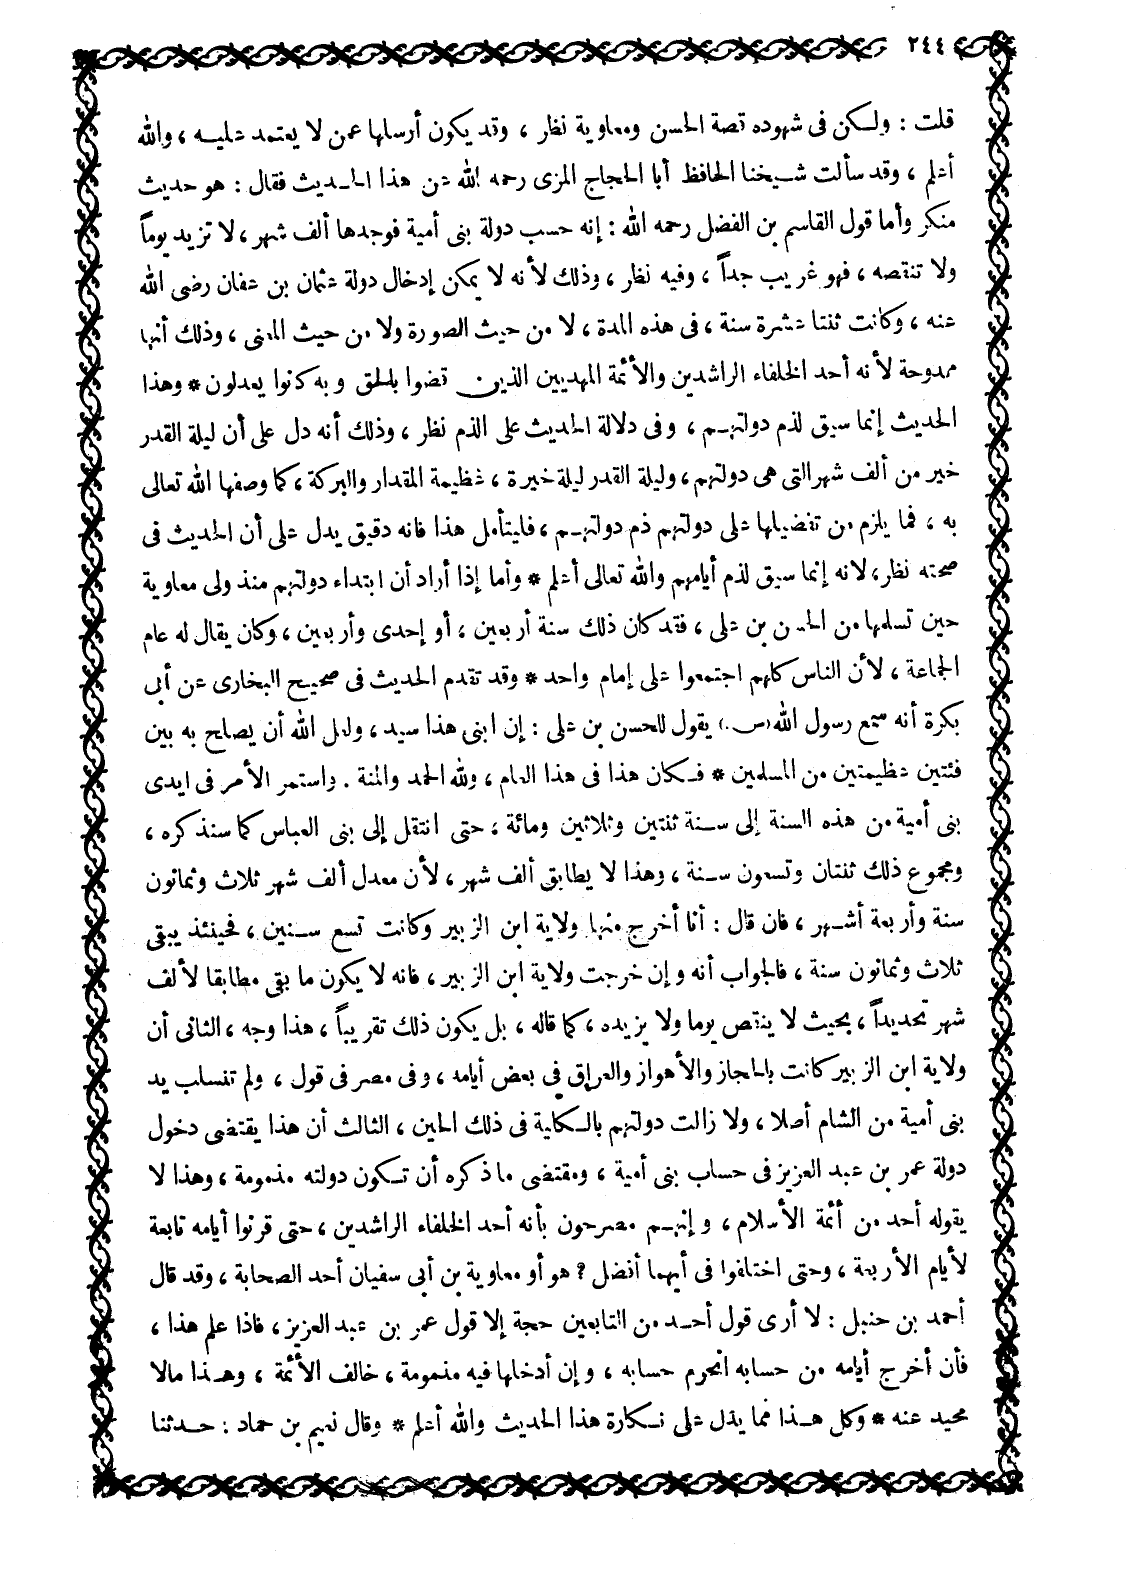 ٢٤٤
قلت : ولـكن فى شهوده قصة الحسن ومعاوية نظر ، وقد يكون أرسلها عمن لا يعتمد عليـه ، والله
أعلم ، وقد سألت شـيخنا الحافظ أبا الحجاج المزى رحمه الله عن هذا الحـديث فقال : هو حديث
منكر وأما قول القاسم بن الفضل رحمه الله : إنه حسب دولة بنى أمية فوجدها ألف شهر ، لا تزيد يوماً
ولا تنقصه ، فهو غريب جداً ، وفيه نظر ، وذلك لأنه لا يمكن إدخال دولة عثمان بن عفان رضى الله
عنه ، وكانت ثنتا عشرة سنة ، فى هذه المدة ، لا من حيث الصورة ولا من حيث المعنى ، وذلك أنها
ممدوحة لأنه أحد الخلفاء الراشدين والأئمة المهديين الذين قضوا بالحق وبه كانوا يعدلون * وهذا
الحديث إنما سيق لذم دولتهـم ، وفى دلالة الحديث على الذم نظر ، وذلك أنه دل على أن ليلة القدر
خير من ألف شهر التى هى دولتهم ، وليلة القدر ليلة خيرة ، عظيمة المقدار والبركة ، كما وصفها الله تعالى
به ، فما يلزم من تفضيلها على دولتهم ذم دولتهـم ، فليتأمل هذا فانه دقيق يدل على أن الحديث فى
صحته نظر ، لانه إنما سيق لذم أيامهم والله تعالى أعلم * وأما إذا أراد أن ابتداء دولتهم منذ ولى معاوية
حين تسلمها من الحسن بن على ، فقد كان ذلك سنة أربعين ، أو إحدى وأربعين ، وكان يقال له عام
الجماعة ، لأن الناس كلهم اجتمعوا على إمام واحد * وقد تقدم الحديث فى صحيح البخارى عن أبى
بكرة أنه سمع رسول الله (س.) يقول للحسن بن على : إن ابنى هذا سيد ، ولعل الله أن يصلح به بين
فئتين عظيمتين من المسلمين * فـكان هذا فى هذا العام ، ولله الحمد والمنة . واستمر الأمر فى ايدى
بنى أمية من هذه السنة إلى سـنة ثنتين وثلاثين ومائة ، حتى انتقل إلى بنى العباس كما سنذكره ،
ومجموع ذلك ثنتان وتسعون سـنة ، وهذا لا يطابق ألف شهر ، لأن معدل ألف شهر ثلاث وثمانون
سنة وأربعة أشـهر ، فان قال : أنا أخرج منها ولاية ابن الزبير وكانت تسع سـنين ، فحينئذ يبقى
ثلاث وثمانون سنة ، فالجواب أنه وإن خرجت ولاية ابن الزبير ، فانه لا يكون ما بقى مطابقا لألف
شهر تحديداً ، بحيث لا ينقص يوما ولا يزيده ، كما قاله ، بل يكون ذلك تقريباً ، هذا وجه ، الثانى أن
ولاية ابن الزبير كانت بالحجاز والأهواز والعراق في بعض أيامه ، وفى مصر فى قول ، ولم تنسلب يد
بنى أمية من الشام أصلا ، ولا زالت دولتهم بالـكلية فى ذلك الحين ، الثالث أن هذا يقتضى دخول
دولة عمر بن عبد العزيز فى حساب بنى أمية ، ومقتضى ما ذكره أن تـكون دولته مذمومة ، وهذا لا
يقوله أحد من أئمة الأسلام ، وإنهـم مصرحون بأنه أحد الخلفاء الراشدين ، حتى قرنوا أيامه تابعة
لأيام الأربعة ، وحتى اختلفوا فى أيهما أفضل ؟ هو أو معاوية بن أبى سفيان أحد الصحابة ، وقد قال
أحمد بن حنبل : لا أرى قول أحـد من التابعين حجة إلا قول عمر بن عبد العزيز ، فاذا علم هذا ،
فأن أخرج أيامه من حسابه انخرم حسابه ، وإن أدخلها فيه مذمومة ، خالف الأئمة ، وهـذا مالا
محيد عنه * وكل هـذا مما يدل على نـكارة هذا الحديث والله أعلم * وقال نعيم بن حماد : حـدثنا